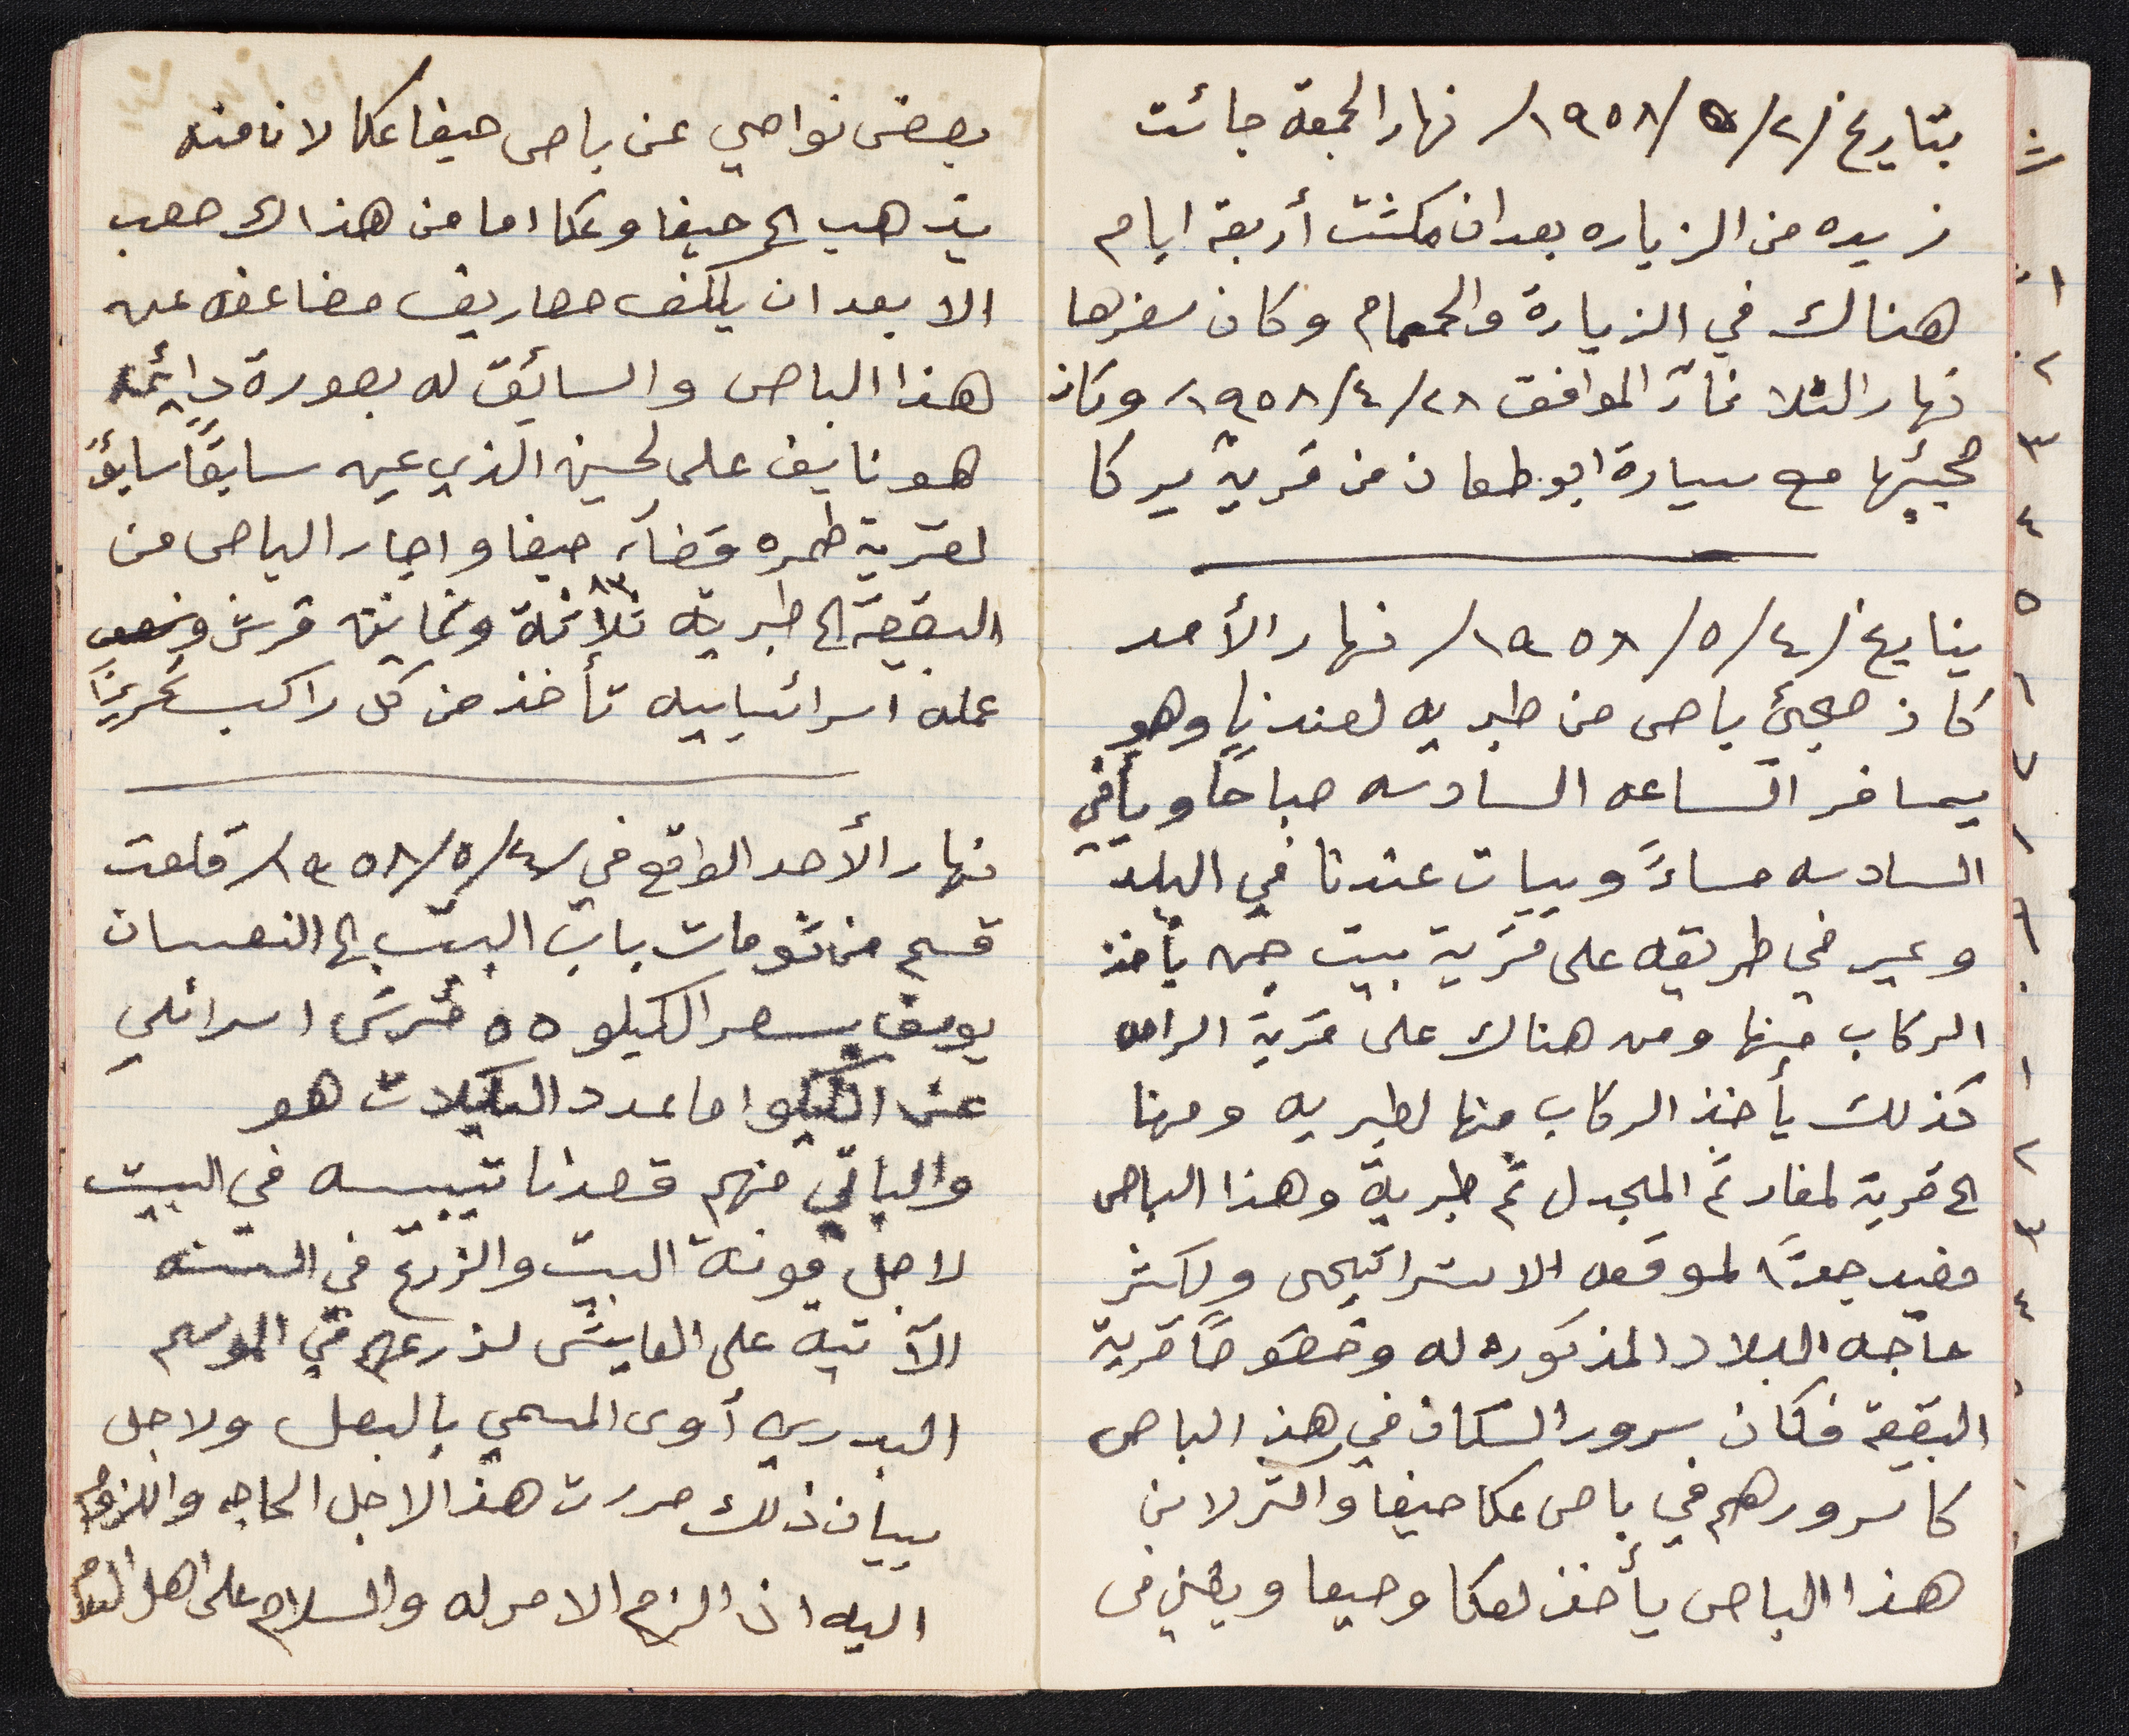 بتاريخ /٢/٥/١٩٥٨/ نهار الجمعة جائت
زيده من الزياره بعد ان مكثت أربعة ايام
هناك في الزيارة والحمام وكان سفرها
نهار الثلاثاء الموافق ٢٨/٤/١٩٥٨/ وكان
مجيئها مع سيارة ابو طعان من قرية يركا
بتايخ /٤/٥/١٩٥٨/ نهار الأحد
كان مجئ باص من طبريه لعندنا وهو
يسافر الساعه السادسه صباحاً ويأتي
السادسه مساءً ويبات عندنا في البلد
وعبر في طريقه على قرية بيت جن يأخذ
الركاب منها ومن هناك على قرية الرامه
كذلك يأخذ الركاب منها لطبريه ومنها
الى قرية لمغار ثم المجدل ثم طبرية وهذا الباص
مفيد جداً لموقعه الاستراتيجي ولكثر
حاجه البلاد المذكوره له وخصوصاً قرية
البقيعة فكان سرور السكان في هذ الباص
كا سرورهم في باص عكا حيفا واكثر لابن
هذا الباص يأخذ لعكا وحيفا ويغني في
بعض نواحي عن باص حيفا عكا لانا منه
يذهب الى حيفا وعكا اما من هذاك صعب
الا بعد ان يكلف مصاريف مضاعفه عن
هذا الباص والسائق له بصورة دائمه
هو نايف على لحسين الذي عين سابقاً سايق
لقرية طمره قضاء حيفا واجار الباص من
البقيعة الى طبرية ثلاثة وثمانين قرش ونصف
٨٣
عمله اسرائيليه تأخذ من كل راكب تقريباً
نهار الأحد الواقع في /٤/٥/١٩٥٨/ قلعت
قسم من ثومات باب البيت الى النعسان
يوسف بسعر الكيلو ٥٥ قرش اسرائلي
عن الكيلو اما عدد الكيلات هو
والباقي منهم قصدنا تيبيسه في البيت
لاجل مونة البيت والزرع في السنه
الآتيه على العايش لزرعهم في الموسم
البدري أوى المسمي بالبعل ولاجل
بيان ذلك حررت هذا لاجل الحاجه واللزوم
اليه اذا الزم الامر له والسلام على اهل